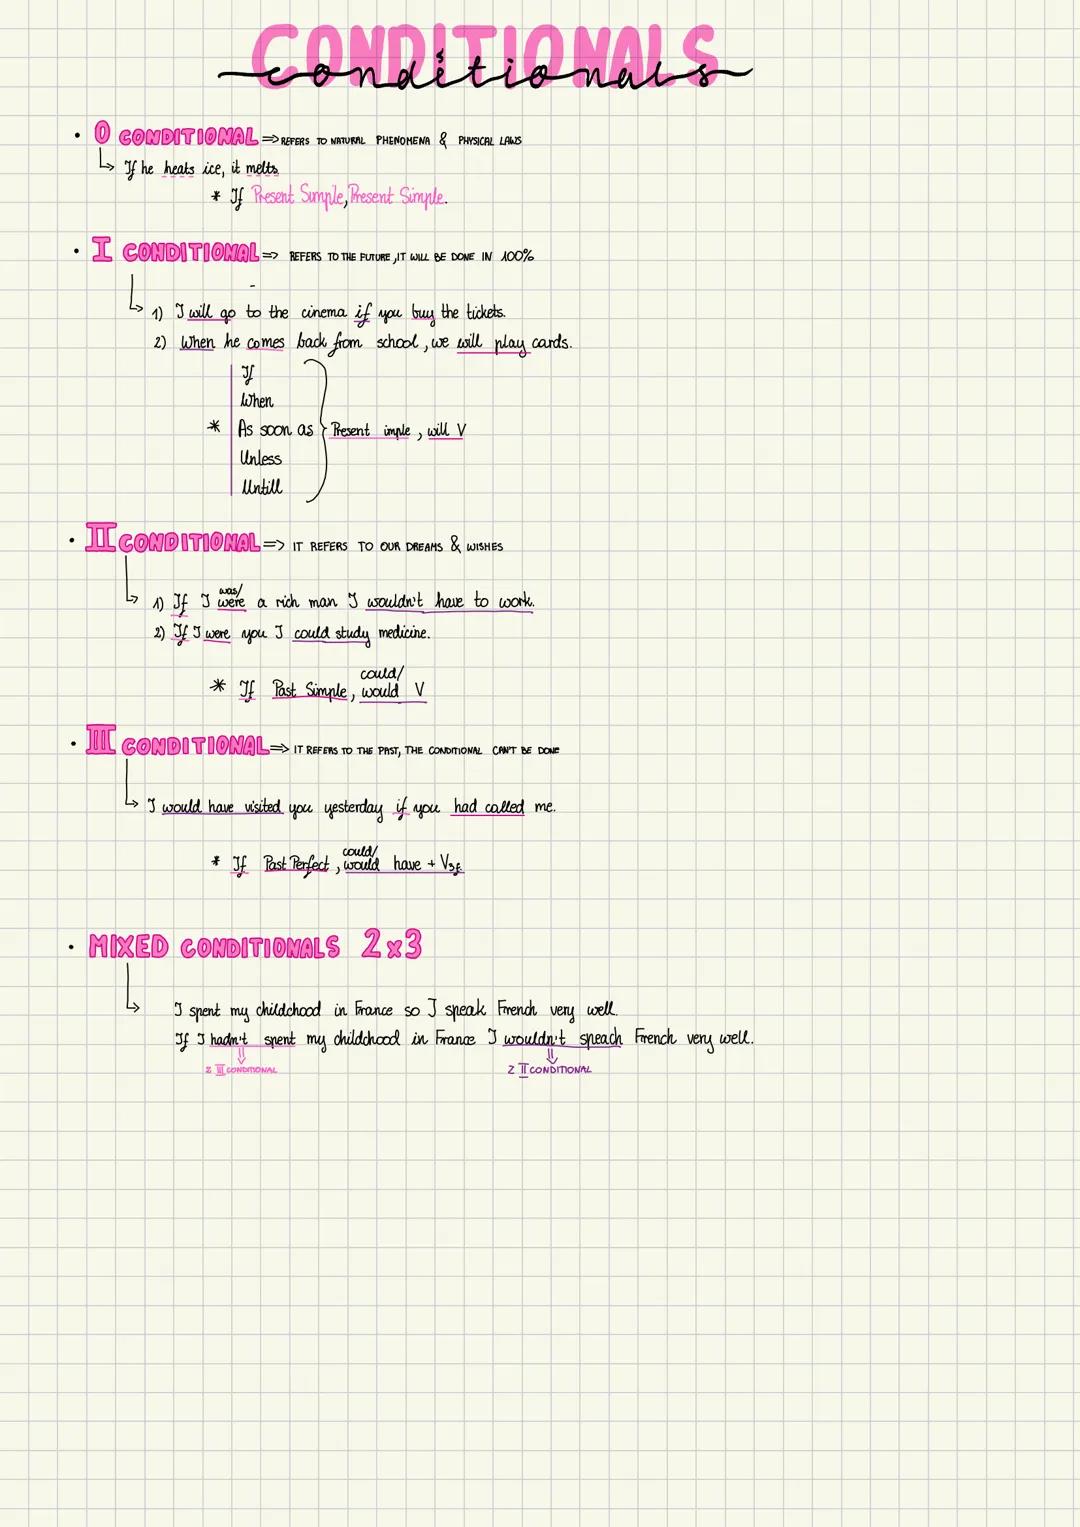 CONDITIONALS
conditionals
• 0 CONDITIONAL => REFERS TO NATURAL PHENOMENA & PHYSICAL LAWS
If he heats ice, it melts
* If Present Simple, Present Simple.
• I CONDITIONAL => REFERS TO THE FUTURE, IT WILL BE DONE IN 100%
1) I will go to the cinema if you buy the tickets.
2) When he comes back from school, we will play cards.
If
When
* As soon as } Present imple, will V
Unless
Untill
• II CONDITIONAL => IT REFERS TO OUR DREAMS & WISHES
was/
1) If I were a rich man I wouldn't have to work.
2) If I were you I could study medicine.
could/
* If Past Simple, would V
• III CONDITIONAL => IT REFERS TO THE PAST, THE CONDITIONAL CAN'T BE DONE
I would have visited you yesterday if you had called me.
could/
* If Past Perfect, would have + V3f.
• MIXED CONDITIONALS 2x3
I spent my childchood in France so I speak French very well.
If I hadn't spent my childchood in France I wouldn't speach French very well.
Z III CONDITIONAL
Z II CONDITIONAL